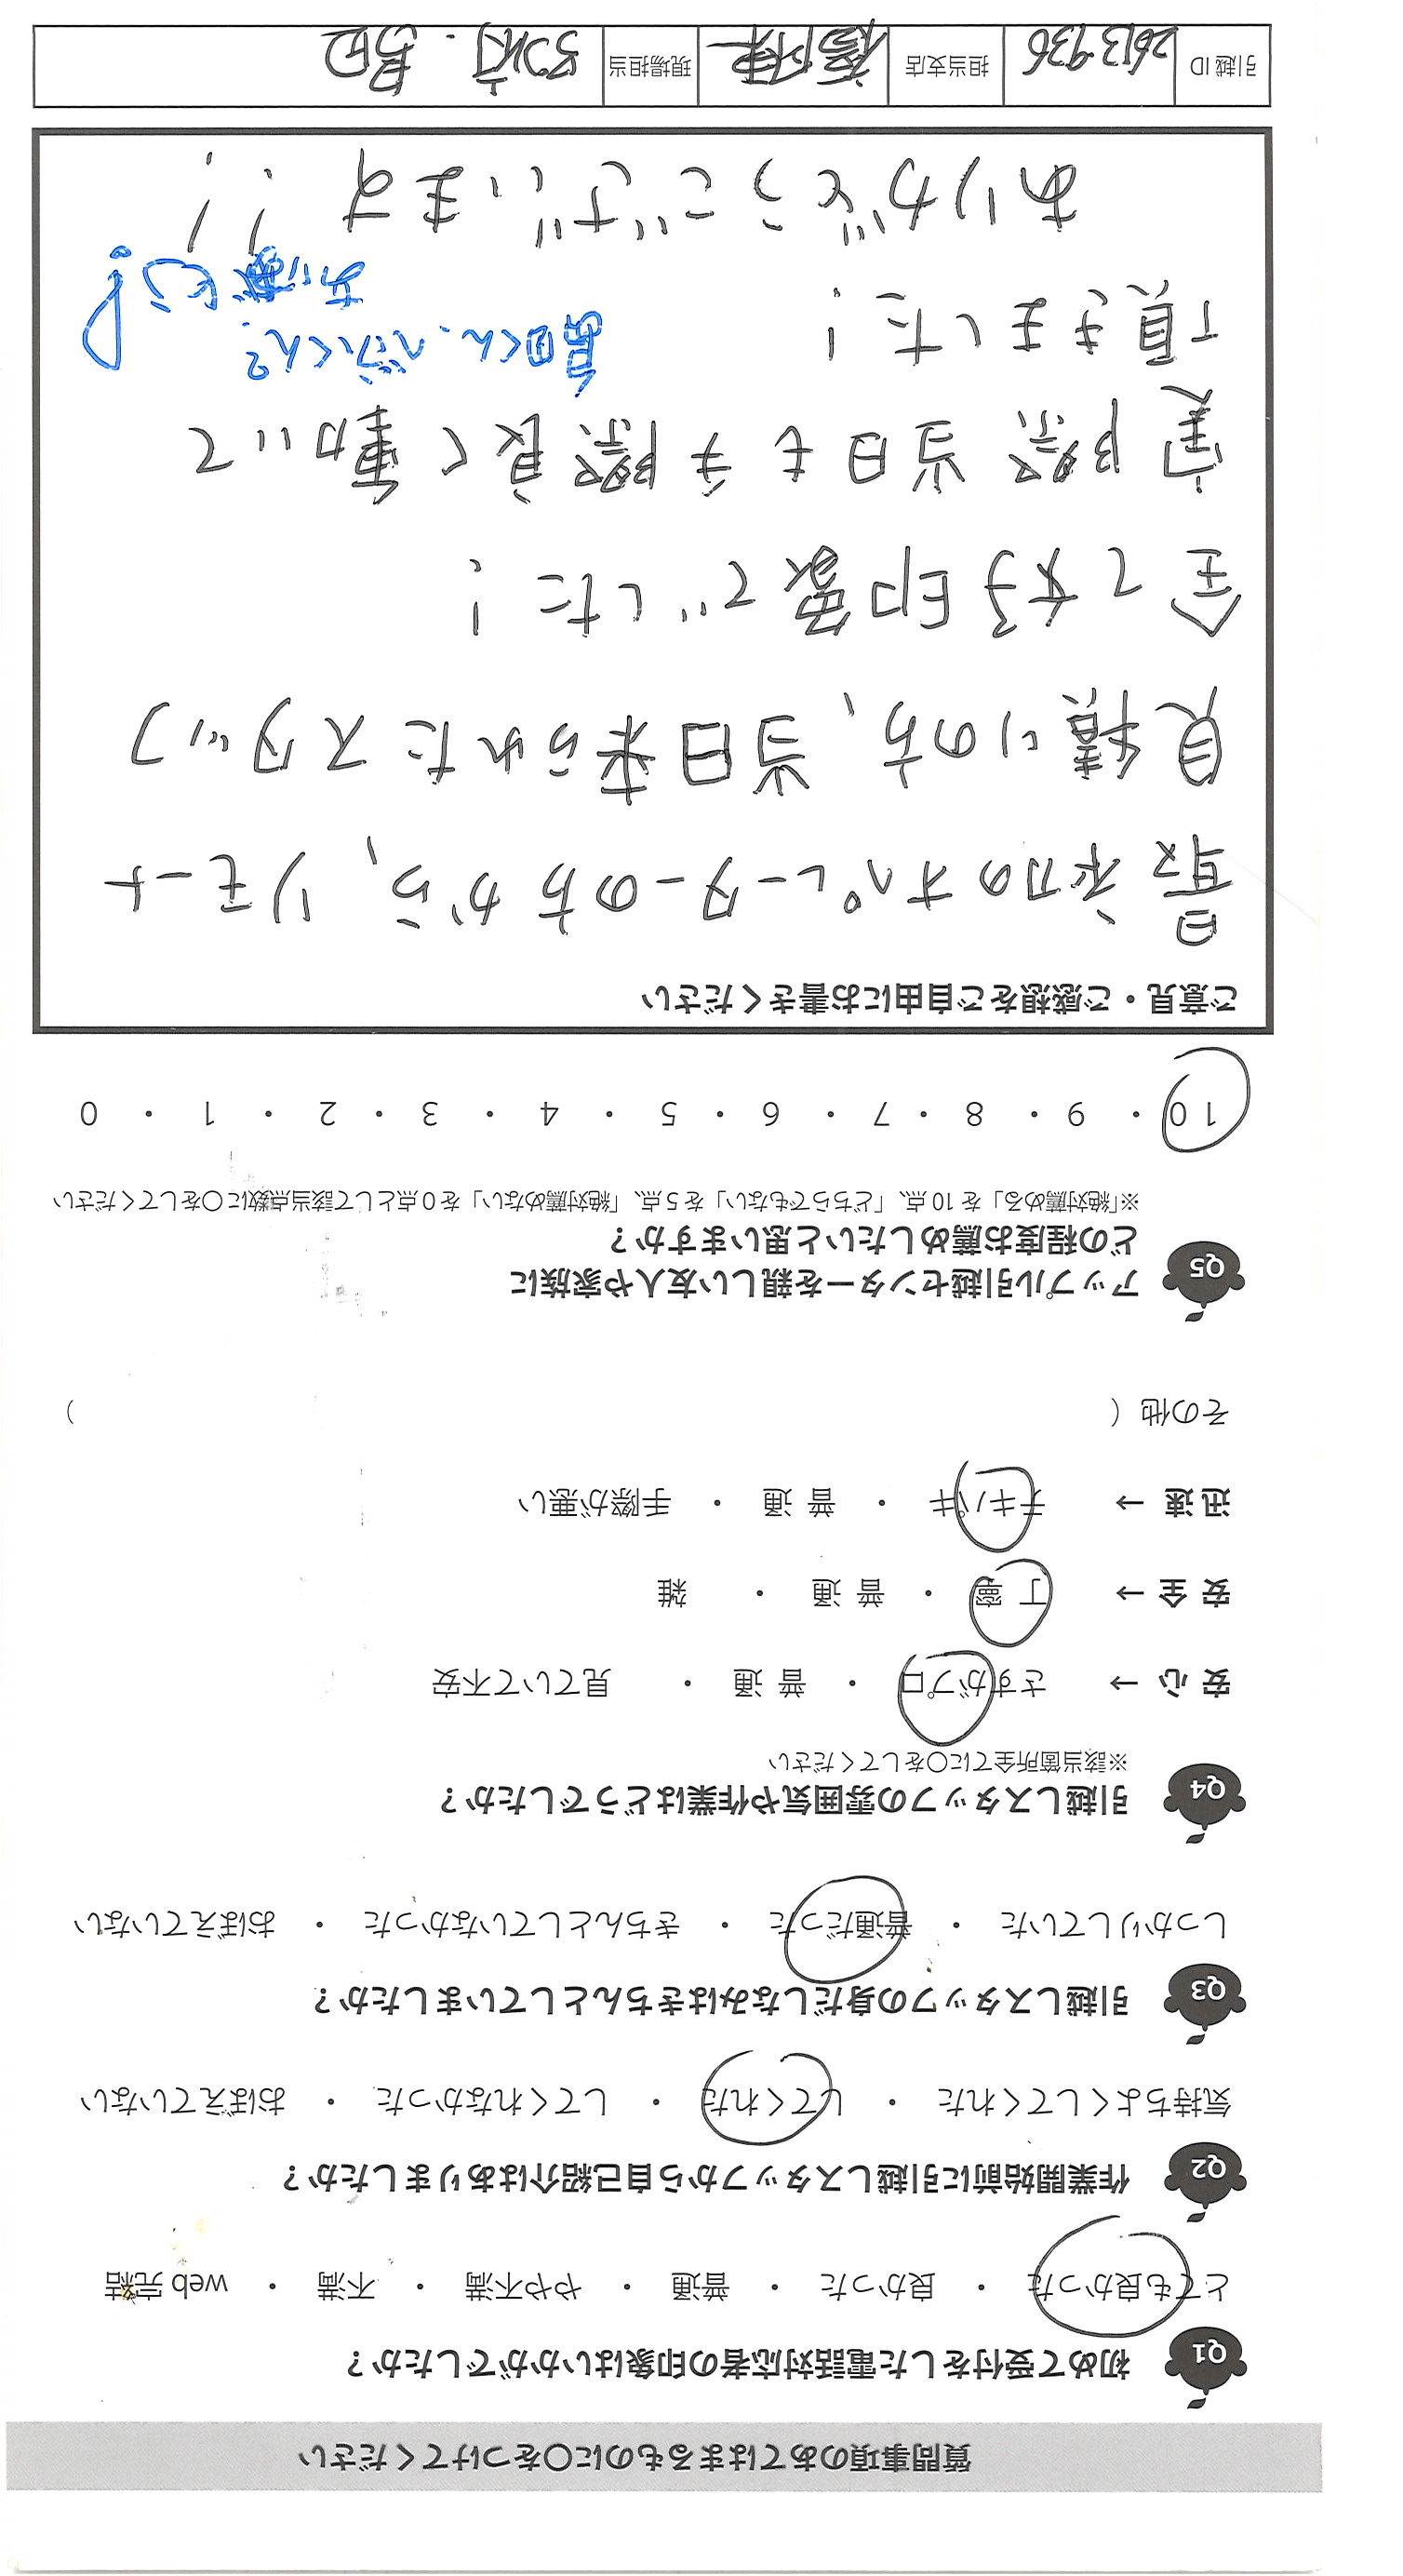 質問事項のあてはまるものに〇をつけてください
Q1 初めて受付をした電話対応者の印象はいかがでしたか？
とても良かった ・ 良かった ・ 普通 ・ やや不満 ・ 不満 ・ web 完結
Q2 作業開始前に引越しスタッフから自己紹介はありましたか？
気持ちよくしてくれた ・ してくれた ・ してくれなかった ・ おぼえていない
Q3 引越しスタッフの身だしなみはきちんとしていましたか？
しっかりしていた ・ 普通だった ・ きちんとしていなかった ・ おぼえていない
Q4 引越しスタッフの雰囲気や作業はどうでしたか？
※該当箇所全てに〇をしてください
安 心 → さすがプロ ・ 普 通 ・ 見ていて不安
安 全 → 丁 寧 ・ 普 通 ・ 雑
迅 速 → テキパキ ・ 普 通 ・ 手際が悪い
その他（ ）
Q5 アップル引越センターを親しい友人や家族に
どの程度お薦めしたいと思いますか？
※「絶対薦める」を 10 点、「どちらでもない」を 5 点、「絶対薦めない」を 0 点として該当点数に〇をしてください
10 ・ 9 ・ 8 ・ 7 ・ 6 ・ 5 ・ 4 ・ 3 ・ 2 ・ 1 ・ 0
ご意見・ご感想をご自由にお書きください
最初のオペレーターの方から、リモート
見積りの方、当日来られたスタッフ
全て好印象でした！
実際当日も手際良く動いて
頂きました！
ありがとうございます！！
引越 ID 2613936 担当支店 福岡東 現場担当